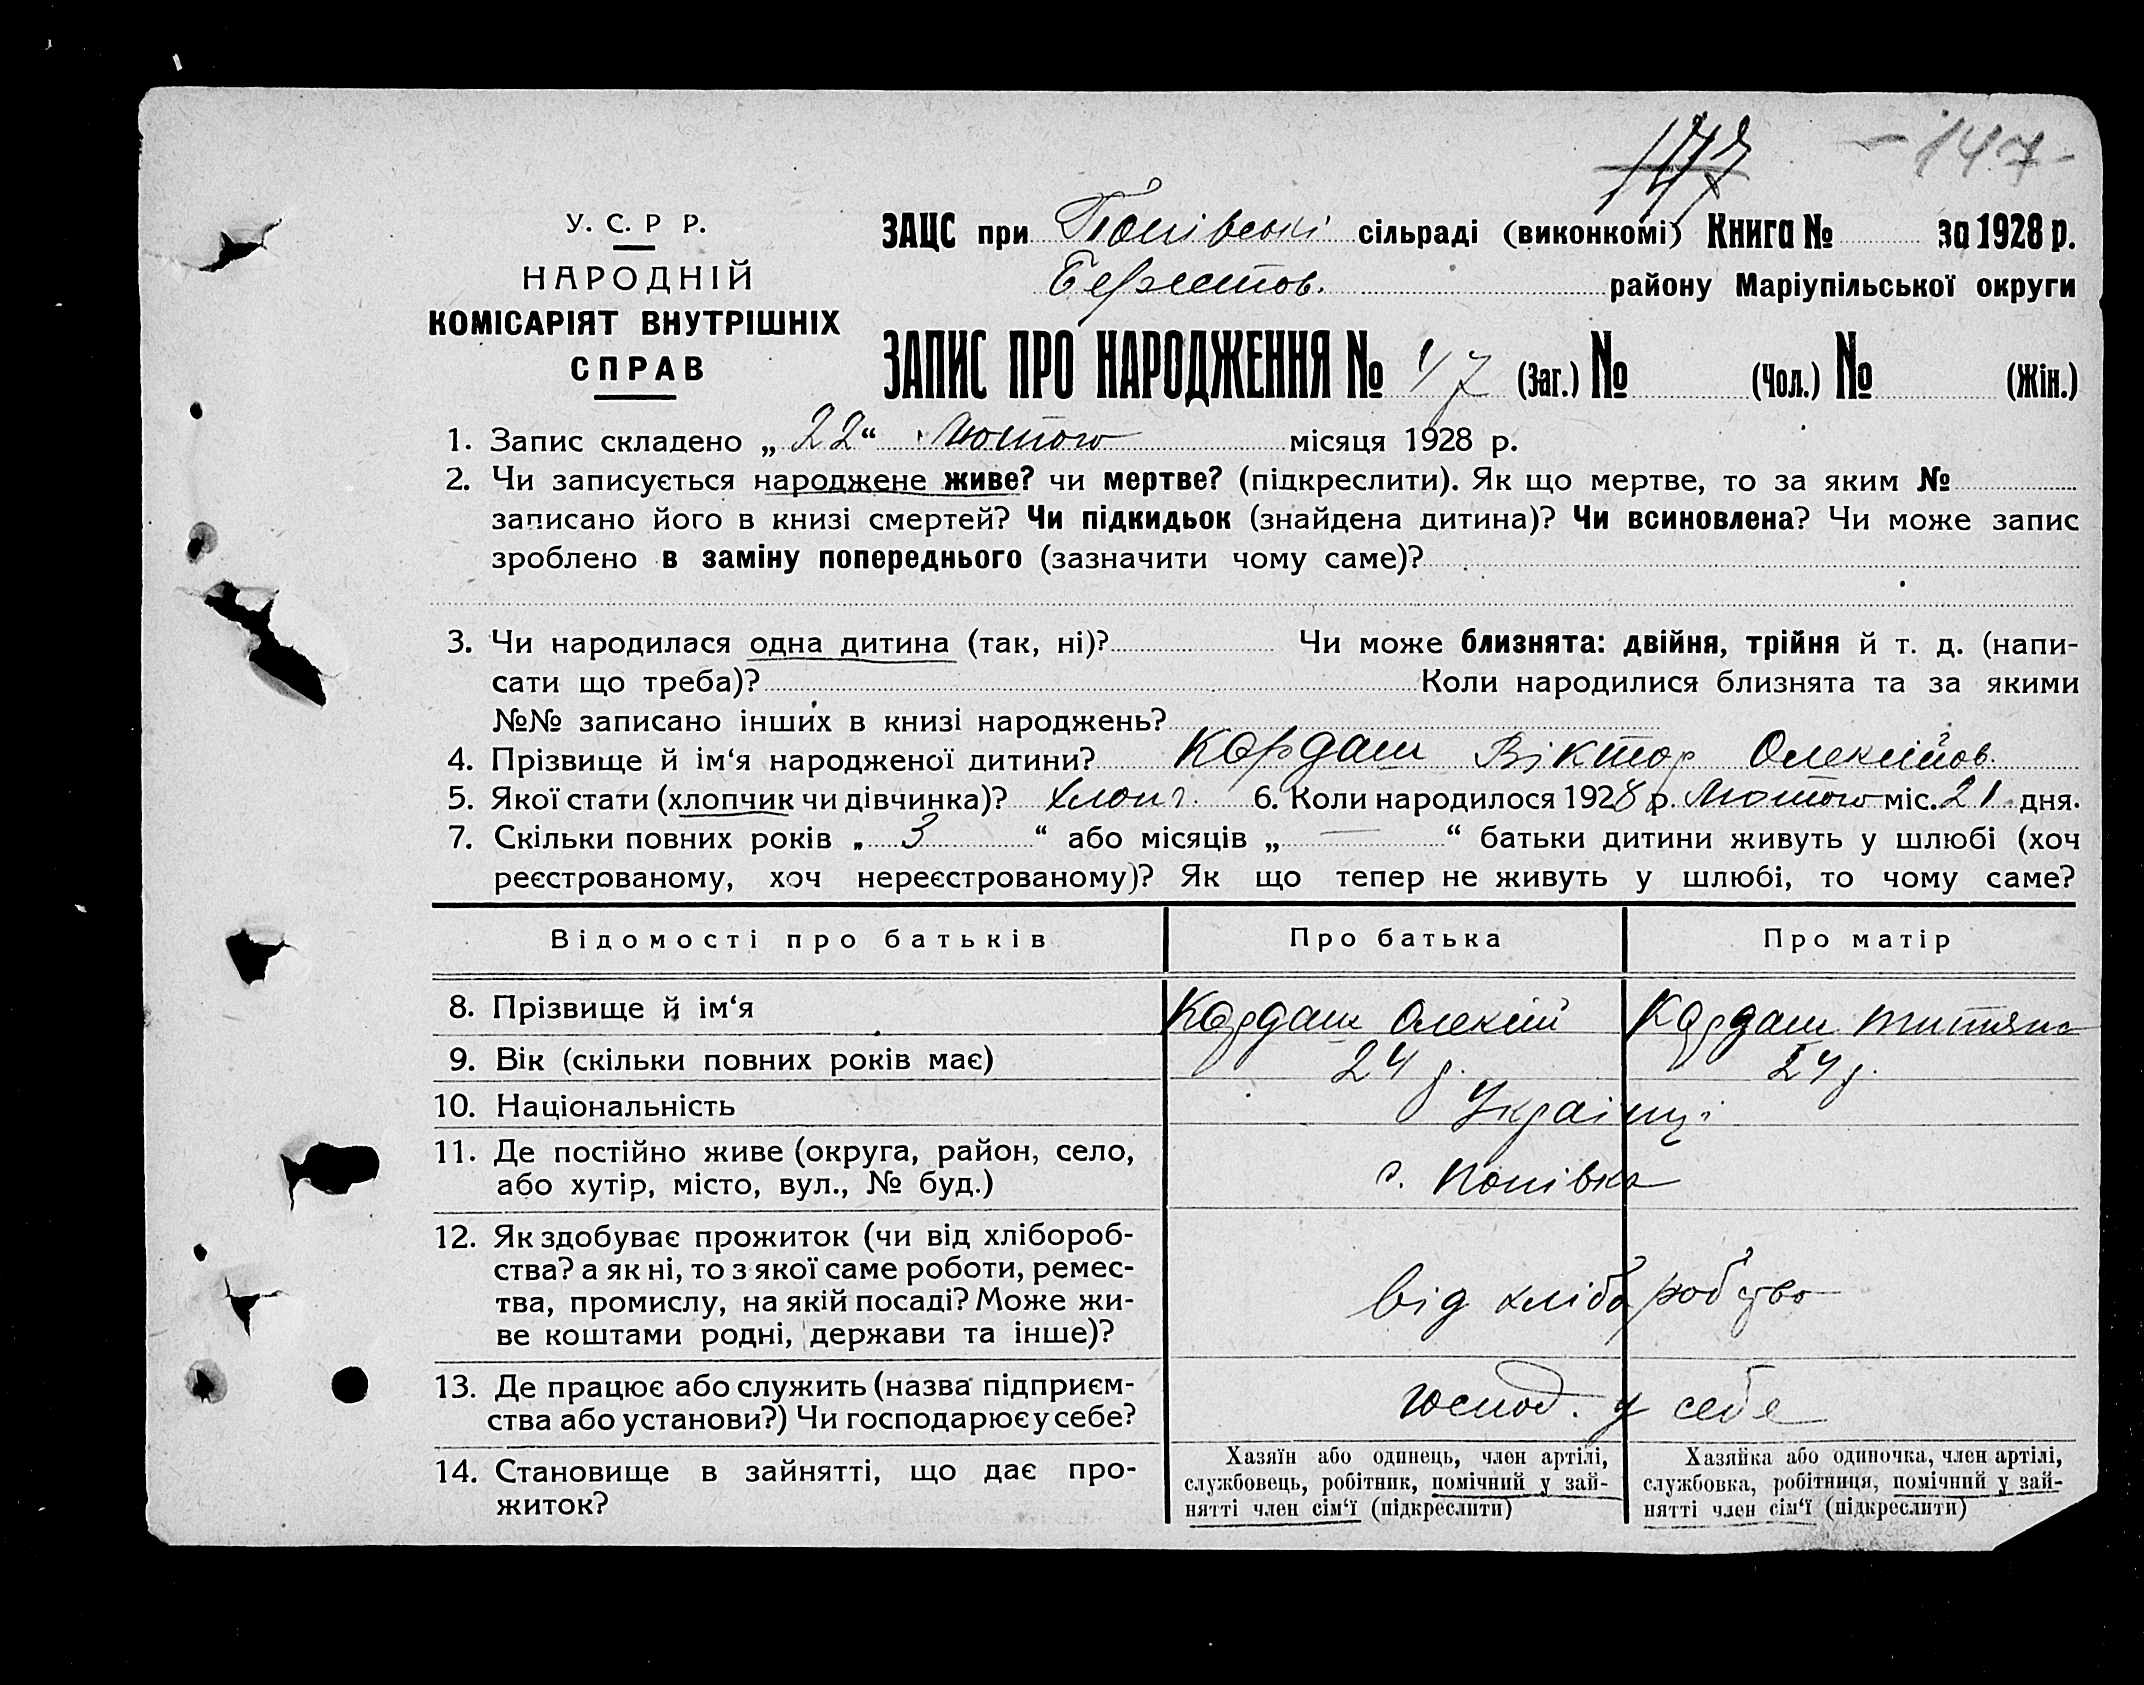 147 - 147 -
У. С. Р Р.
ЗАЦС при Попівські сільраді (виконкомі) Книга № за 1928 р.
НАРОДНІЙ
Берестов. району Маріупільської округи
КОМІСАРІЯТ ВНУТРІШНІХ
СПРАВ
ЗАПИС ПРО НАРОДЖЕННЯ № 47 (Заг.) № (Чол.) № (Жін.)
1. Запис складено „ 22 “ Лютого місяця 1928 р.
2. Чи записується народжене живе? чи мертве? (підкреслити). Як що мертве, то за яким №
записано його в книзі смертей? Чи підкидьок (знайдена дитина)? Чи всиновлена? Чи може запис
зроблено в заміну попереднього (зазначити чому саме)?
3. Чи народилася одна дитина (так, ні)? Чи може близнята: двійня, трійня й т. д. (напи-
сати що треба)? Коли народилися близнята та за якими
№№ записано інших в книзі народжень?
4. Прізвище й ім‘я народженої дитини? Кардаш Віктор Олексійов.
5. Якої стати (хлопчик чи дівчинка)? хлопч. 6. Коли народилося 1928 р. Лютого міс. 21 дня.
7. Скільки повних років „ 3 “ або місяців „ — “ батьки дитини живуть у шлюбі (хоч
реєстрованому, хоч нереєстрованому)? Як що тепер не живуть у шлюбі, то чому саме?
Відомості про батьків Про батька Про матір
8. Прізвище й ім‘я Кардаш Олексій Кардаш Титяна
9. Вік (скільки повних років має) 24 р. 24 р.
10. Національність Українці
11. Де постійно живе (округа, район, село,
або хутір, місто, вул., № буд.) с. Попівка
12. Як здобуває прожиток (чи від хлібороб-
ства? а як ні, то з якої саме роботи, ремес-
тва, промислу, на якій посаді? Може жи-
ве коштами родні, держави та інше)? від хліборобство
13. Де працює або служить (назва підприєм-
ства або установи?) Чи господарює у себе? господ. у себе
14. Становище в зайнятті, що дає про-
житок?
Хазяїн або одинець, член артілі,
службовець, робітник, помічний у зай-
нятті член сім‘ї (підкреслити)
Хазяйка або одиночка, член артілі,
службовка, робітниця, помічний у зай-
нятті член сім‘ї (підкреслити)